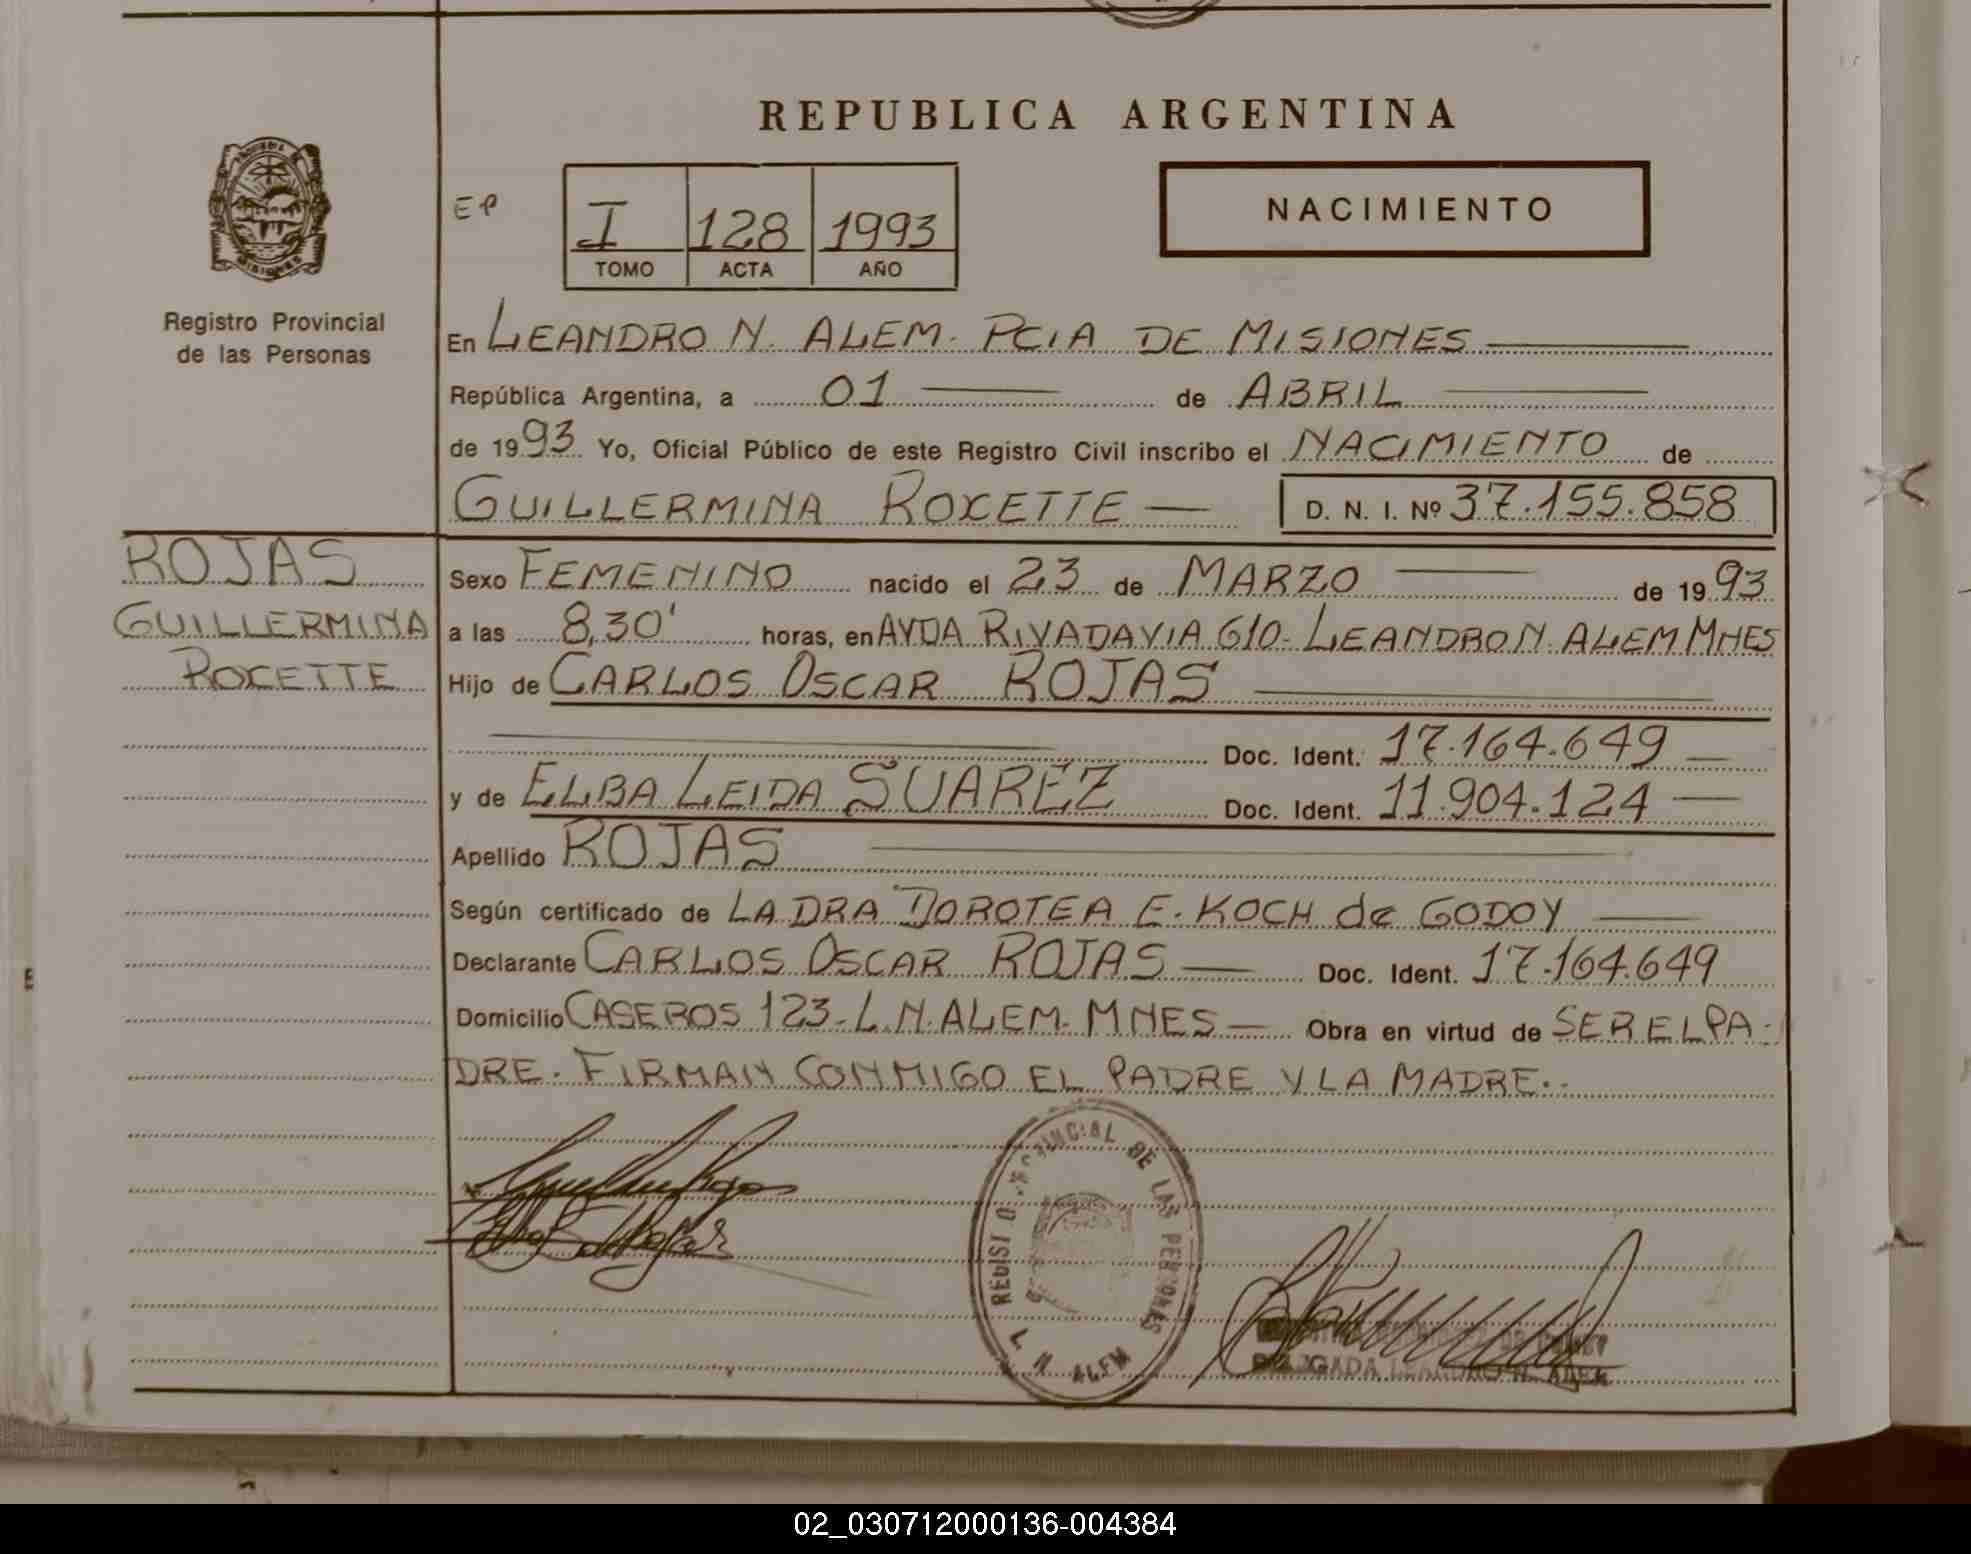 REPUBLICA ARGENTINA
PROVINCIA
MISIONES
Registro Provincial
de las Personas
EP
I 128 1993
TOMO ACTA AÑO
NACIMIENTO
En LEANDRO N. ALEM. PCIA DE MISIONES
República Argentina, a 01 de ABRIL
de 1993 Yo, Oficial Público de este Registro Civil inscribo el NACIMIENTO de
GUILLERMINA ROXETTE D. N. I. Nº 37.155.858
ROJAS
GUILLERMINA
ROXETTE
Sexo FEMENINO nacido el 23 de MARZO de 1993
a las 8,30' horas, en AVDA RIVADAVIA 610- LEANDRO N. ALEM MNES
Hijo de CARLOS OSCAR ROJAS
Doc. Ident. 17.164.649
y de ELBA LEIDA SUAREZ Doc. Ident. 11.904.124
Apellido ROJAS
Según certificado de LA DRA DOROTEA E. KOCH de GODOY
Declarante CARLOS OSCAR ROJAS Doc. Ident. 17.164.649
Domicilio CASEROS 123- L.N. ALEM- MNES Obra en virtud de SER EL PA-
DRE. FIRMAN CONMIGO EL PADRE Y LA MADRE..
REGISTRO PROVINCIAL DE LAS PERSONAS
L. N. ALEM
DELEGADA LEANDRO N. ALEM
02_030712000136-004384